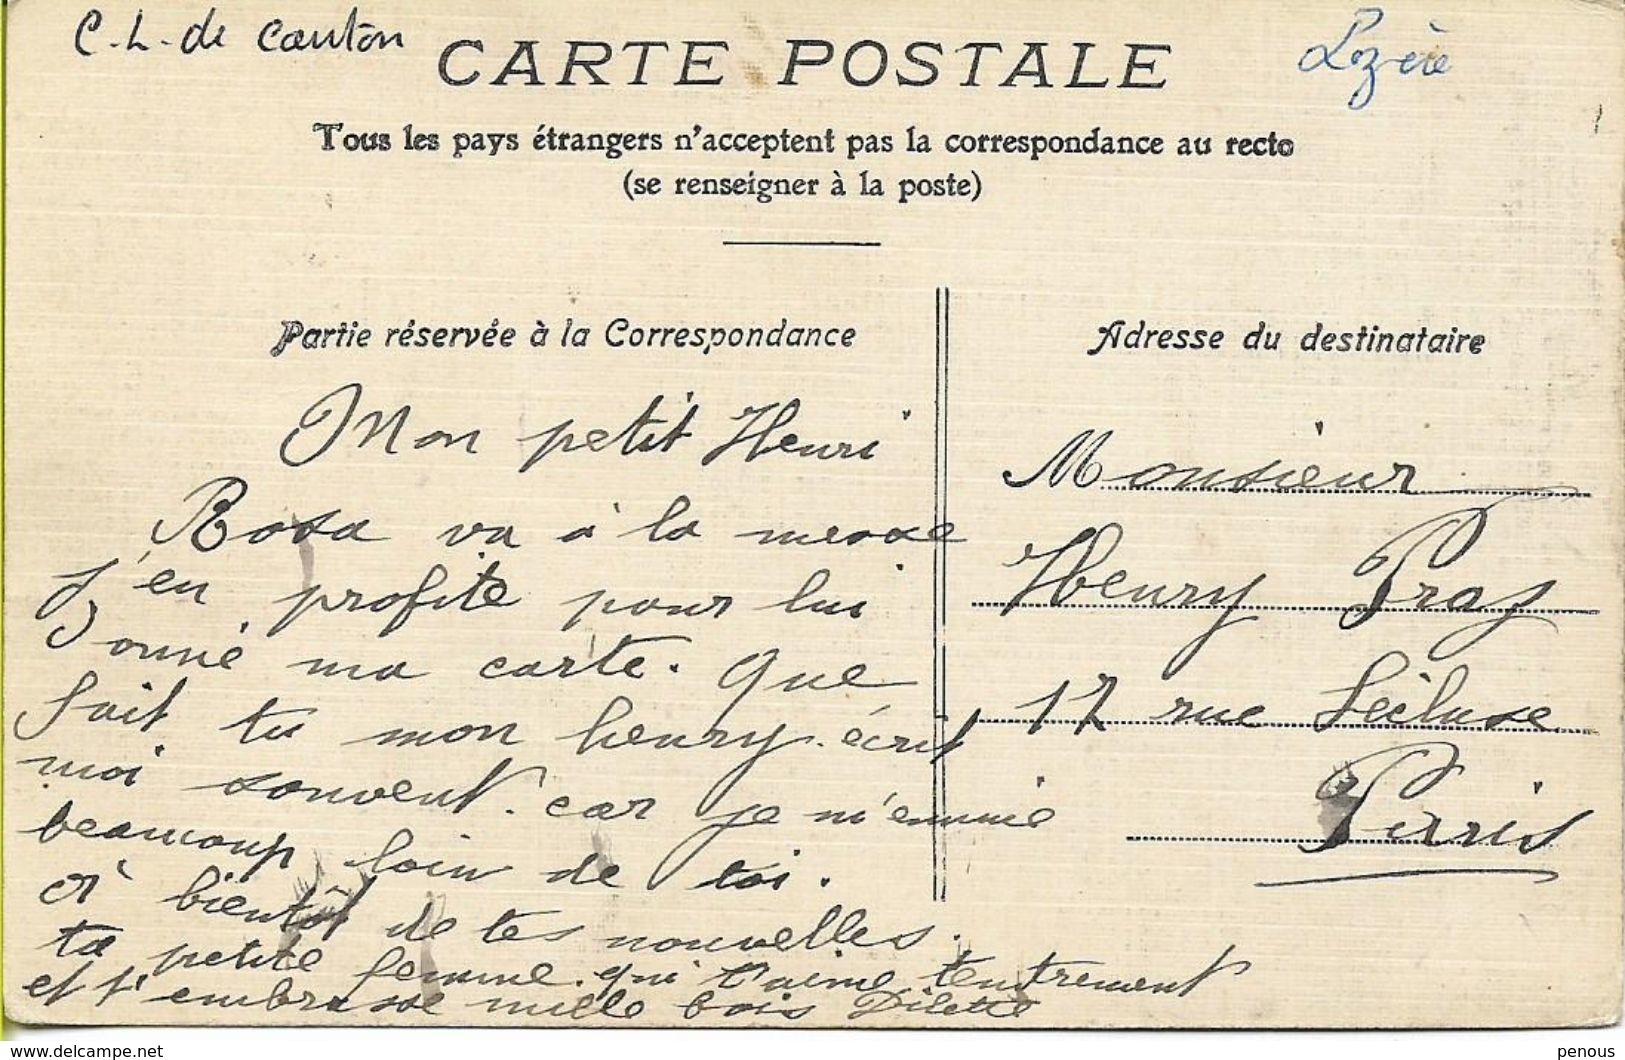 C.L. de canton
Lozère
CARTE POSTALE
Tous les pays étrangers n'acceptent pas la correspondance au recto
(se renseigner à la poste)
Partie réservée à la Correspondance
Mon petit Henri
Rosa va à la messe
j'en profite pour lui
donné ma carte. que
fait tu mon henry. écrit
moi souvent. car je m'ennuie
beaucoup loin de toi.
à bientôt de tes nouvelles.
ta petite femme. qui t'aime tentrement
et t'embrasse mille bois
Adresse du destinataire
Monsieur
Henry
17 rue Lécluse
Parris
penous
www.delcampe.net